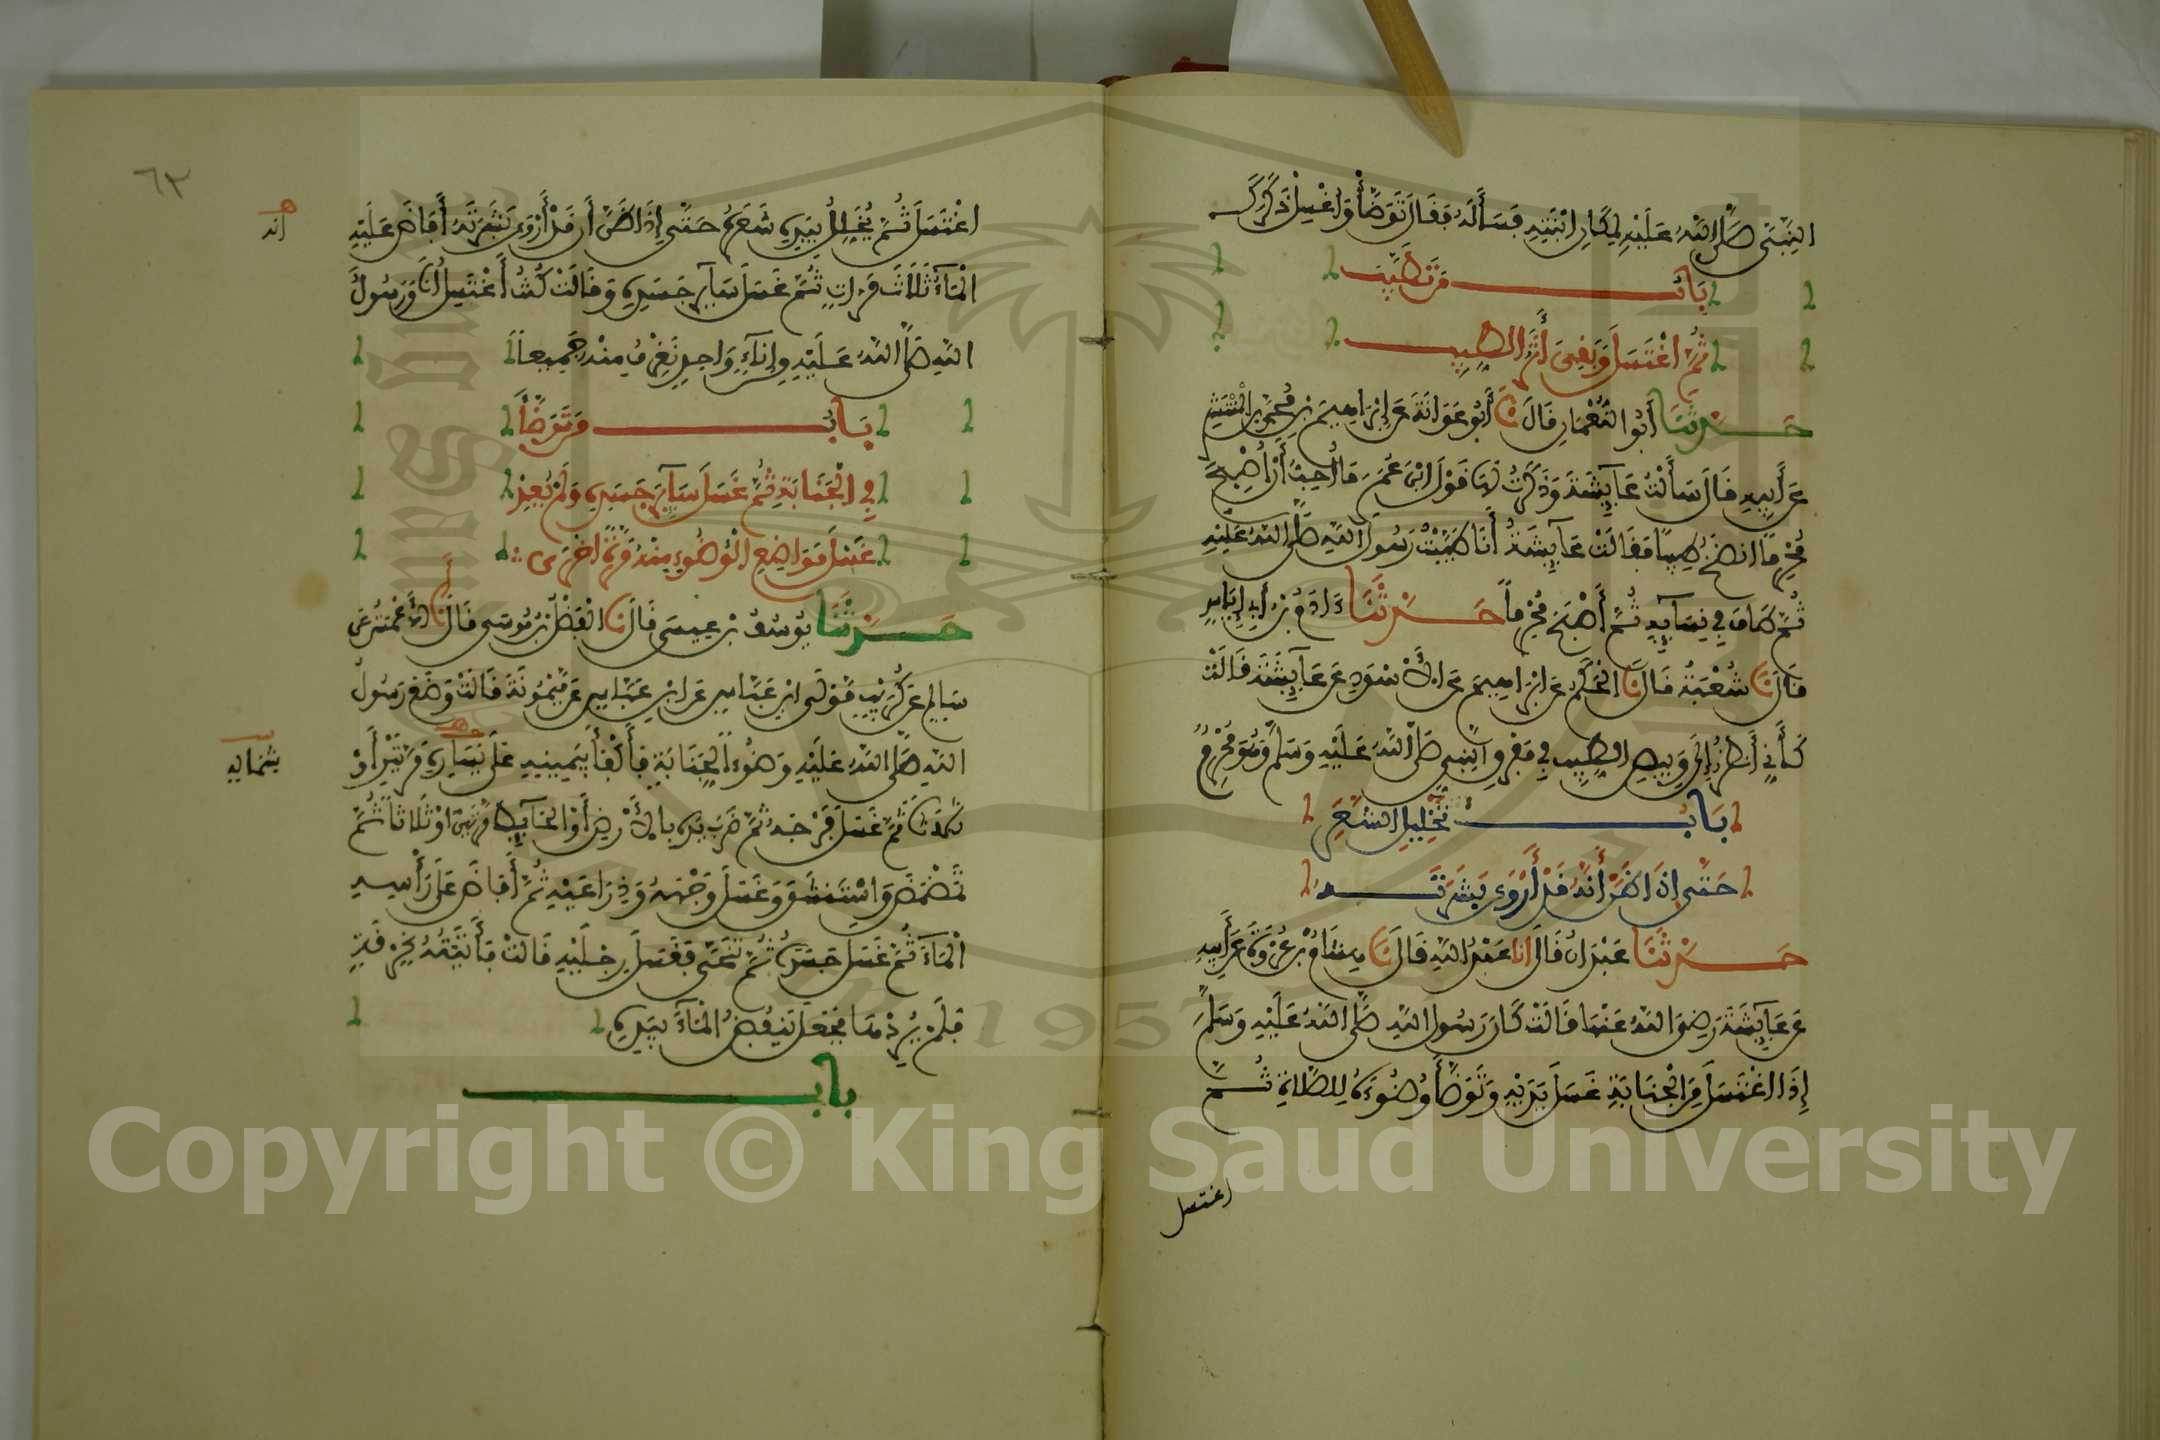 النَّبِيَّ صَلَّى اللَّهُ عَلَيْهِ لِمَكَانِ ابْنَتِهِ فَسَأَلَهُ فَقَالَ تَوَضَّأْ وَاغْسِلْ ذَكَرَكَ
بَابُ مَن تَطَيَّبَ
ثُمَّ اغْتَسَلَ وَبَقِيَ أَثَرُ الطِّيبِ
حَدَّثَنَا أَبُو النُّعْمَانِ قَالَ نَا أَبُو عَوَانَةَ عَن إِبْرَاهِيمَ بْنِ مُحَمَّدِ بْنِ الْمُنْتَشِرِ
عَن أَبِيهِ قَالَ سَأَلْتُ عَائِشَةَ وَذَكَرْتُ لَهَا قَوْلَ ابْنِ عُمَرَ مَا أُحِبُّ أَنْ أُصْبِحَ
مُحْرِمًا أَنضَخُ طِيبًا فَقَالَتْ عَائِشَةُ أَنَا طَيَّبْتُ رَسُولَ اللَّهِ صَلَّى اللَّهُ عَلَيْهِ
ثُمَّ طَافَ فِي نِسَائِهِ ثُمَّ أَصْبَحَ مُحْرِمًا حَدَّثَنَا ءَادَمُ بْنُ أَبِي إِيَاسٍ
قَالَ نَا شُعْبَةُ قَالَ نَا الْحَكَمُ عَن إِبْرَاهِيمَ عَنِ الْأَسْوَدِ عَن عَائِشَةَ قَالَتْ
كَأَنِّي أَنظُرُ إِلَى وَبِيصِ الطِّيبِ فِي مَفْرِقِ النَّبِيِّ صَلَّى اللَّهُ عَلَيْهِ وَسَلَّمَ وَهُوَ مُحْرِمٌ
بَابُ تَخْلِيلِ الشَّعَرِ
حَتَّى إِذَا ظَنَّ أَنَّهُ قَدْ أَرْوَى بَشَرَتَهُ
حَدَّثَنَا عَبْدَانُ قَالَ انا عَبْدُ اللَّهِ قَالَ نَا هِشَامُ بْنُ عُرْوَةَ عَن أَبِيهِ
عَن عَائِشَةَ رَضِيَ اللَّهُ عَنْهَا قَالَتْ كَانَ رَسُولُ اللَّهِ صَلَّى اللَّهُ عَلَيْهِ وَسَلَّمَ
إِذَا اغْتَسَلَ مِنَ الْجَنَابَةِ غَسَلَ يَدَيْهِ وَتَوَضَّأَ وُضُوءَهُ لِلصَّلَاةِ ثُمَّ
اغتسل
٦٣
اغْتَسَلَ ثُمَّ يُخَلِّلُ بِيَدِهِ شَعَرَهُ حَتَّى إِذَا ظَنَّ أَن قَدْ أَرْوَى بَشَرَتَهُ أَفَاضَ عَلَيْهِ
انه
الْمَاءَ ثَلَاثَ مَرَّاتٍ ثُمَّ غَسَلَ سَائِرَ جَسَدِهِ وَقَالَتْ كُنتُ أَغْتَسِلُ أَنَا وَرَسُولُ
اللَّهِ صَلَّى اللَّهُ عَلَيْهِ مِن إِنَاءٍ وَاحِدٍ نَغْرِفُ مِنْهُ جَمِيعًا
بَابُ مَن تَوَضَّأَ
فِي الْجَنَابَةِ ثُمَّ غَسَلَ سَائِرَ جَسَدِهِ وَلَمْ يُعِدْ
غَسْلَ مَوَاضِعِ الْوُضُوءِ مِنْهُ مَرَّةً أُخْرَى
حَدَّثَنَا يُوسُفُ بْنُ عِيسَى قَالَ نَا الْفَضْلُ بْنُ مُوسَى قَالَ أَنَا الْأَعْمَشُ عَن
سَالِمٍ عَن كُرَيْبٍ مَوْلَى ابْنِ عَبَّاسٍ عَن ابْنِ عَبَّاسٍ عَن مَيْمُونَةَ قَالَتْ وَضَعَ رَسُولُ
اللَّهِ صَلَّى اللَّهُ عَلَيْهِ وَضُوءَ الْجَنَابَةِ فَأَكْفَأَ بِيَمِينِهِ عَلَى يَسَارِهِ مَرَّتَيْنِ أَوْ
شماله
ثَلَاثًا ثُمَّ غَسَلَ فَرْجَهُ ثُمَّ ضَرَبَ يَدَهُ بِالْأَرْضِ أَوِ الْحَائِطِ مَرَّتَيْنِ أَوْ ثَلَاثًا ثُمَّ
تَمَضْمَضَ وَاسْتَنشَقَ وَغَسَلَ وَجْهَهُ وَذِرَاعَيْهِ ثُمَّ أَفَاضَ عَلَى رَأْسِهِ
الْمَاءَ ثُمَّ غَسَلَ جَسَدَهُ ثُمَّ تَنَحَّى فَغَسَلَ رِجْلَيْهِ قَالَتْ فَأَتَيْتُهُ بِخِرْقَةٍ
فَلَمْ يُرِدْهَا فَجَعَلَ يَنفُضُ الْمَاءَ بِيَدِهِ
بَابُ
1957
Copyright © King Saud University